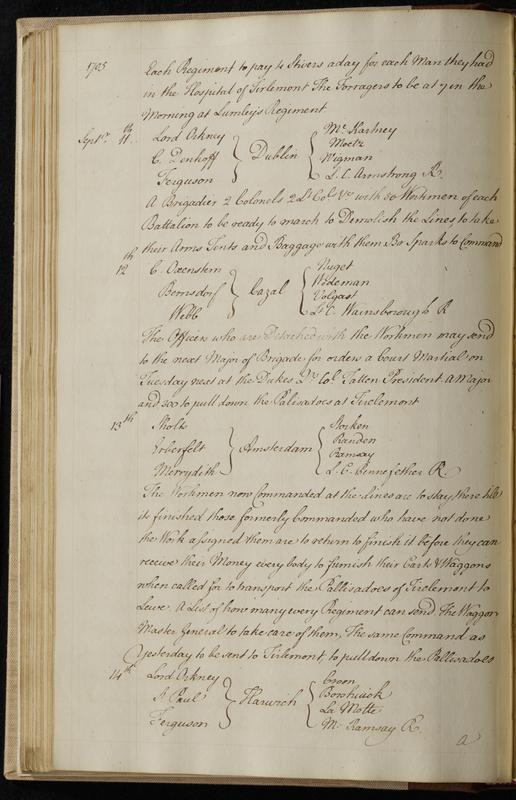 1705 Each Regiment to pay 4 Stivers a day for each Man they had
in the Hospital of Tirlemont The Forragers to be at 7 in the
Morning at Lumley's Regiment
Septr. 11th Lord Orkney
C. Denhoff
Ferguson
Dublin
Mc. Kartney
Moetz
Wigman
L. C. Armstrong R.
A Brigadier 2 Colonels 2 Lt Col. &c with 50 Workmen of each
Battalion to be ready to march to Demolish the Lines, to take
their Arms Tents and Baggage with them Br Sparks to Command
12th C. Oxenstern
Bernsdorf
Webb
Cazal
Nuget
Wedeman
Volgast
Lt C. Wainsborough R
The Officers who are Detached with the Workmen may send
to the next Major of Brigade for orders a Court Martial on
Tuesday next at the Dukes Qr. Col. Tatton President a Major
and 300 to pull down the Palisadoes at Tirelemont
13th Sholts
Erberfelt
Merrydith
Amsterdam
Storken
Randen
Ramsay
L. C. Pennefether R
The Workmen now Commanded at the Lines are to stay there till
its finished those formerly Commanded who have not done
the Work assigned them are to return to finish it before they can
receive their Money every body to furnish their Carts & Waggons
when called for to transport the Pallisadoes of Tirelemont to
Lewe. A List of how many every Regiment can send The Waggon
Master General to take care of them, The same Command as
Yesterday to be sent to Tirlemont, to pull down the Pallisadoes
14th Lord Orkney
St Paul
Ferguson
Harwich
Croon
Borthwick
La Motte
Mr. Ramsay R.
a